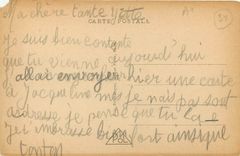 Ma chère tante Yette
CARTE POSTALE
Je suis bien contente
que tu vienne, aujourd'hui
allai envoyer hier une carte
à Jacqueline mes je nais pas sont
adresse je pense que tu
bien fort ainsique
tonton